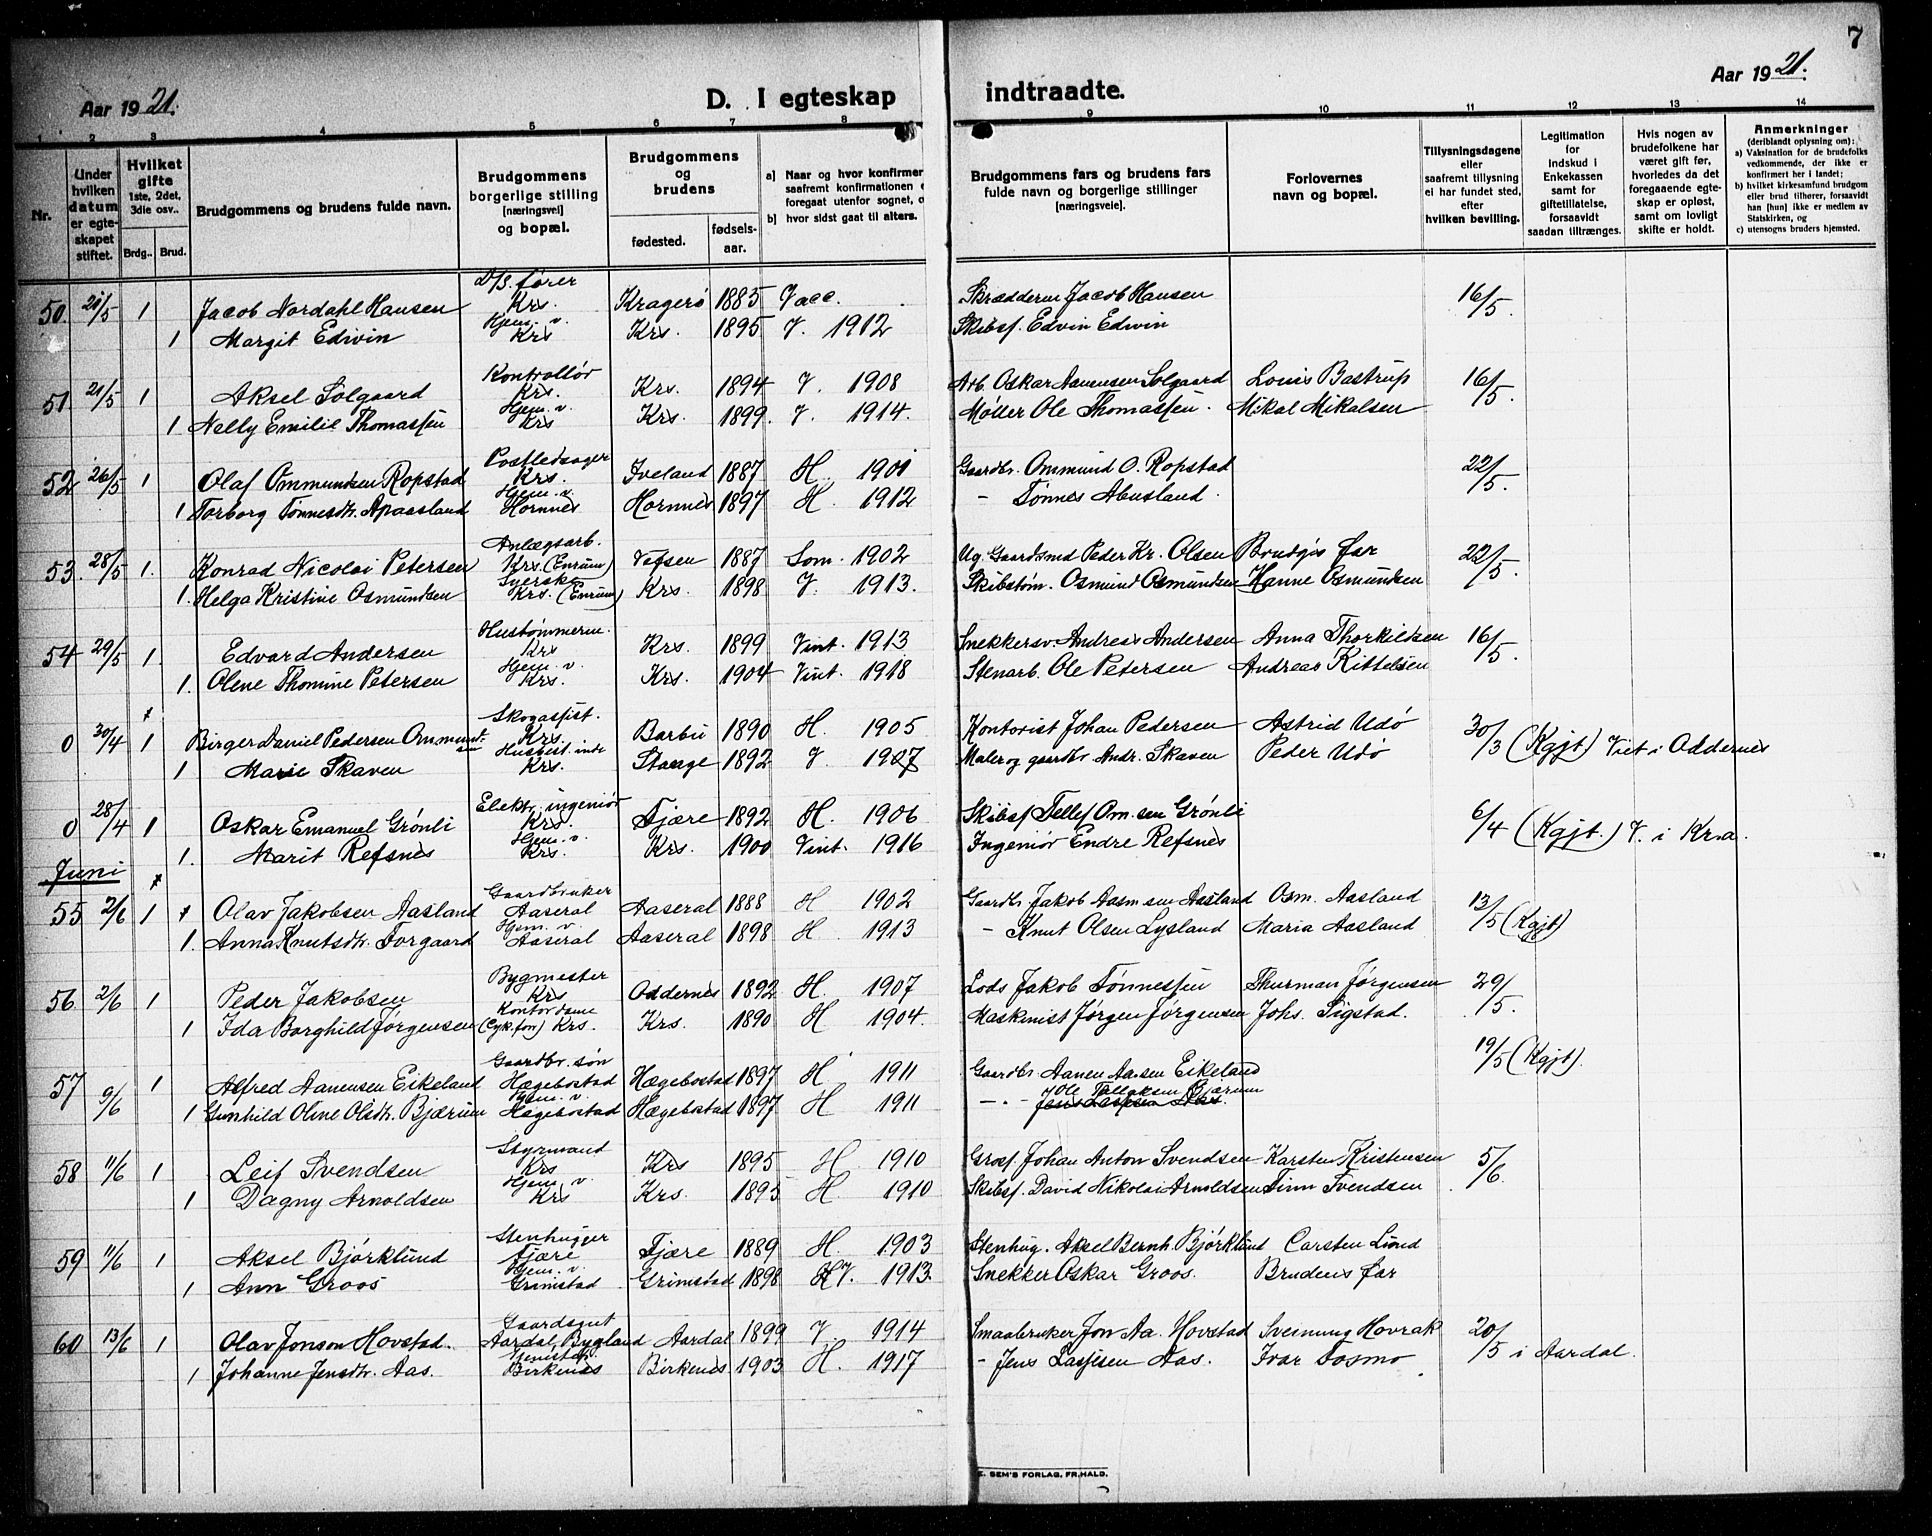 7
Aar 1921.
D. I egteskap indtraadte.
Aar 1921.
1 2 3 4 5 6 7 8 9 10 11 12 13 14
Nr.
Under hvilken datum er egteskapet stiftet.
Hvilket gifte 1ste, 2det, 3die osv..
Brdg..
Brud.
Brudgommens og brudens fulde navn.
Brudgommens borgerlige stilling [næringsvei] og bopæl.
Brudgommens og brudens
fødested.
fødsels-aar.
a) Naar og hvor konfirmer
saafremt konfirmationen e
foregaat utenfor sognet, o
b) hvor sidst gaat til alters.
Brudgommens fars og brudens fars fulde navn og borgerlige stillinger [næringsveie].
Forlovernes navn og bopæl.
Tillysningsdagene eller saafremt tillysning ei har fundet sted, efter hvilken bevilling.
Legitimation for indskud i Enkekassen samt for giftetillatelse, forsaavidt saadan tiltrænges.
Hvis nogen av brudefolkene har været gift før, hvorledes da det foregaaende egteskap er opløst, samt om lovligt skifte er holdt.
Anmerkninger (deriblandt oplysning om):
a) Vaksination for de brudefolks vedkommende, der ikke er konfirmert her i landet;
b) hvilket kirkesamfund brudgom eller brud tilhører, forsaavidt han [hun] ikke er medlem av Statskirken, og
c) utensogns bruders hjemsted.
50 21/5 1 Jacob Nordahl Hansen D/S. fører Krs Kragerø 1885 Vacc. Skrædderm Jacob Hansen 16/5.
1 Margit Edwin Hjem. v. Krs Krs. 1895 V. 1912 Skibsf. Edvin Edwin
51 21/5 1 Aksel Solgaard Kontrollør Krs. Krs. 1894 V. 1908 Arb. Oskar Aanensen Solgaard Louis Bastrup 16/5.
1 Nelly Emilie Thomassen Hjem. v. Krs Krs. 1899. V. 1914. Møller Ole Thomassen. Mikal Mikalsen
52 26/5 1 Olaf Ommundsen Ropstad Postledsager Krs. Iveland 1887 H. 1901 Gaardbr. Ommund O. Ropstad 22/5.
1 Torborg Tønnesdtr. Abusland Hjem. v. Hornnes Hornnes 1897 H. 1912 - Tønnes Abusland.
53. 28/5 1. Konrad Nicolai Petersen Anlægsarb. Krs. (Enrum) Vefsen 1887 Som. 1902 Ug. Gaardsmd Peder Kr. Olsen Brudgs far 22/5.
1. Helga Kristine Osmundsen Syerske Krs. (Enrum) Krs. 1898 V. 1913. Skibstøm. Osmund Osmundsen Hanne Osmundsen
54 29/5 1. Edvard Andersen Hustømmerm. Krs Krs. 1899 Vint. 1913 Snekkersv. Andreas Andersen Anna Thorkildsen 16/5.
1. Olene Thomine Petersen Hjem. v. Krs. Krs. 1904 Vint. 1918 Stenarb. Ole Petersen Andreas Kittelsen
0 30/4 1 Birger Daniel Pedersen Ommundsen Skogassist. Krs. Barbu 1890 H. 1905 Kontorist Johan Pedersen Astrid Udø 30/3 (Kgjt) Viet i Oddernes
1 Marie Skaven Krs. Stange 1892 V. 1907 Maler og gaardbr Andr. Skaven Peder Udø
0 28/4 1 Oskar Emanuel Grønli Elektr. ingeniør Krs. Fjære 1892 H. 1906 Skibsf. Tellef Om.sen Grønli 6/4 (Kgjt.) V. i Kr.a.
1. Marit Refsnes Hjem. v. Krs. Krs. 1900 Vint. 1916 Ingeniør Endre Refsnes
Juni
55 2/6 1 Olav Jakobsen Aasland Gaardbruker Aaseral Aaseral 1888 H 1902 Gaardbr Jakob Aasm.sen Aasland Osm. Aasland 13/5 (Kgjt)
1. Anna Knutsdtr. Torgaard Hjem. v. Aaseral Aaseral 1898 H 1913 - Knut Olsen Lysland Maria Aasland
56 2/6 1 Peder Jakobsen Bygmester Krs Oddernes 1892 H. 1907 Lods Jakob Tønnessen Thurman Jørgensen 29/5.
1 Ida Borghild Jørgensen Kontordame Krs. Krs. 1890 H 1904. Maskinist Jørgen Jørgensen Johs. Sigstad.
57 9/6 1 Alfred Aanensen Eikeland Gaardbr. søn Hægebostad Hægebostad 1897 H 1911 Gaardbr. Aanen Aa.sen Eikeland 19/5 (Kgjt).
1 Gunhild Oline Olsdtr. Bjærum Hjem. v. Hægebostad Hægebostad 1897 H 1911 - Ole Tollaksen Bjærum
58 11/6 1 Leif Svendsen Styrmand Krs Krs 1895 H. 1910 Gross. Johan Anton Svendsen Karsten Kristensen 5/6.
1 Dagny Arnoldsen Hjem. v. Krs Krs. 1895 H 1910 Skibsf. David Nikolai Arnoldsen Finn Svendsen
59 11/6 1 Aksel Bjørklund Stenhugger Fjære Fjære 1889 H. 1903 Stenhug. Aksel Bernh. Bjørklund Carsten Lund
1 Ann Groos Hjem. v. Grimstad Grimstad 1898 V. 1913. Snekker Oskar Groos. Brudens far
60 13/6 1 Olav Jonson Hovstad. Gaardsgut Aardal, Bygland Aardal 1899 V. 1914 Smaabruker Jon Aa. Hovstad Sveinung Hovrak 20/5 i Aardal.
1 Johanne Jensdtr. Aas. Birkenes Birkenes 1903 H. 1917 - Jens Lassesen Aas. Ivar Tosmo
E. SEM'S FORLAG, FR.HALD.